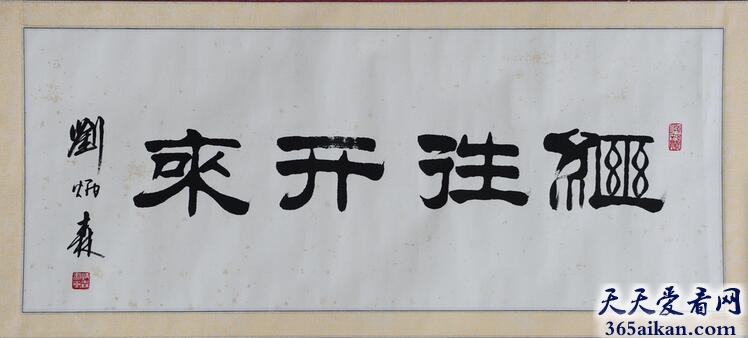 繼往开來
劉炳森
天天爱看网
365aikan.com